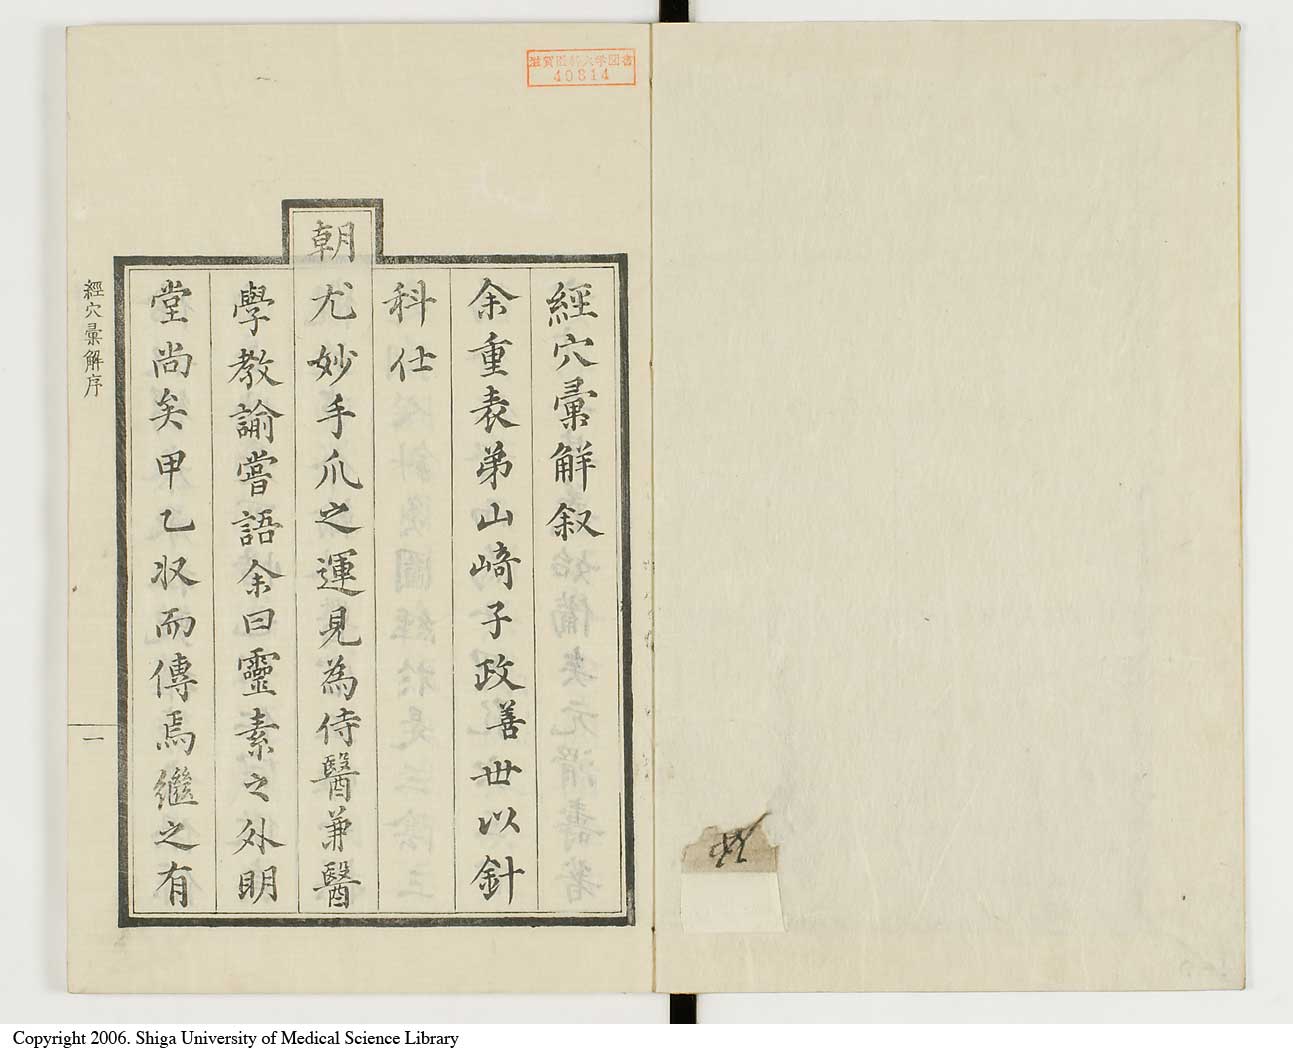 經穴彙解叙
余重表弟山﨑子政善世以針
科仕
朝尤妙手爪之運見為侍醫兼醫
學教諭嘗語余曰靈素之外明
堂尚矣甲乙收而傳焉繼之有
經穴彙解序
一
滋賀医科大学図書
40814
Copyright 2006. Shiga University of Medical Science Library